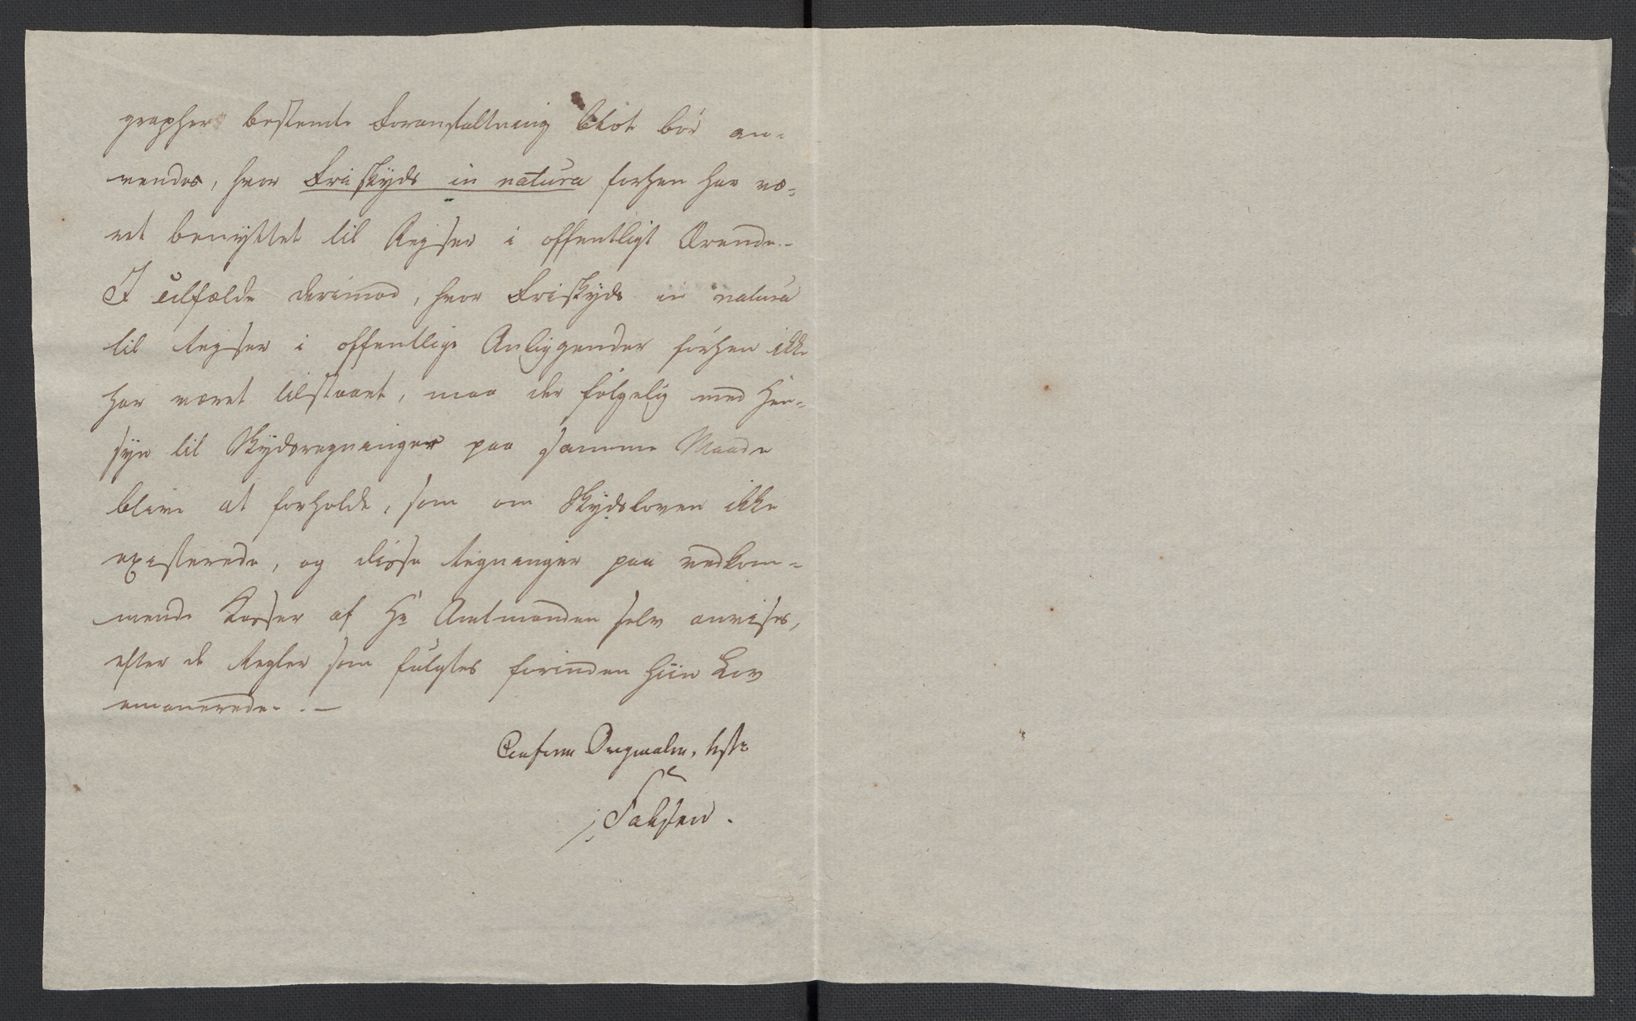 grapher bestemte Foranstaltning blot bör an-
vendes, hvor Friskyds in natura forhen har væ-
ret benyttet til Rejser i offentligt Ærende.-
I Tilfælde derimod, hvor Friskyds in natura
til Rejser i offentlige Anliggender forhen ikke
har været tilstaaet, maa der følgelig med Hen-
syn til Skydsregninger paa samme Maade
blive at forholde, som om Skydsloven ikke
existerede, og disse Regninger paa vedkom-
mende Kasser af Hr Amtmanden selv anvises,
efter de Regler som fulgtes forinden hiin Lov
emanerede. . —
Conform Originalen, test:
Falsen.